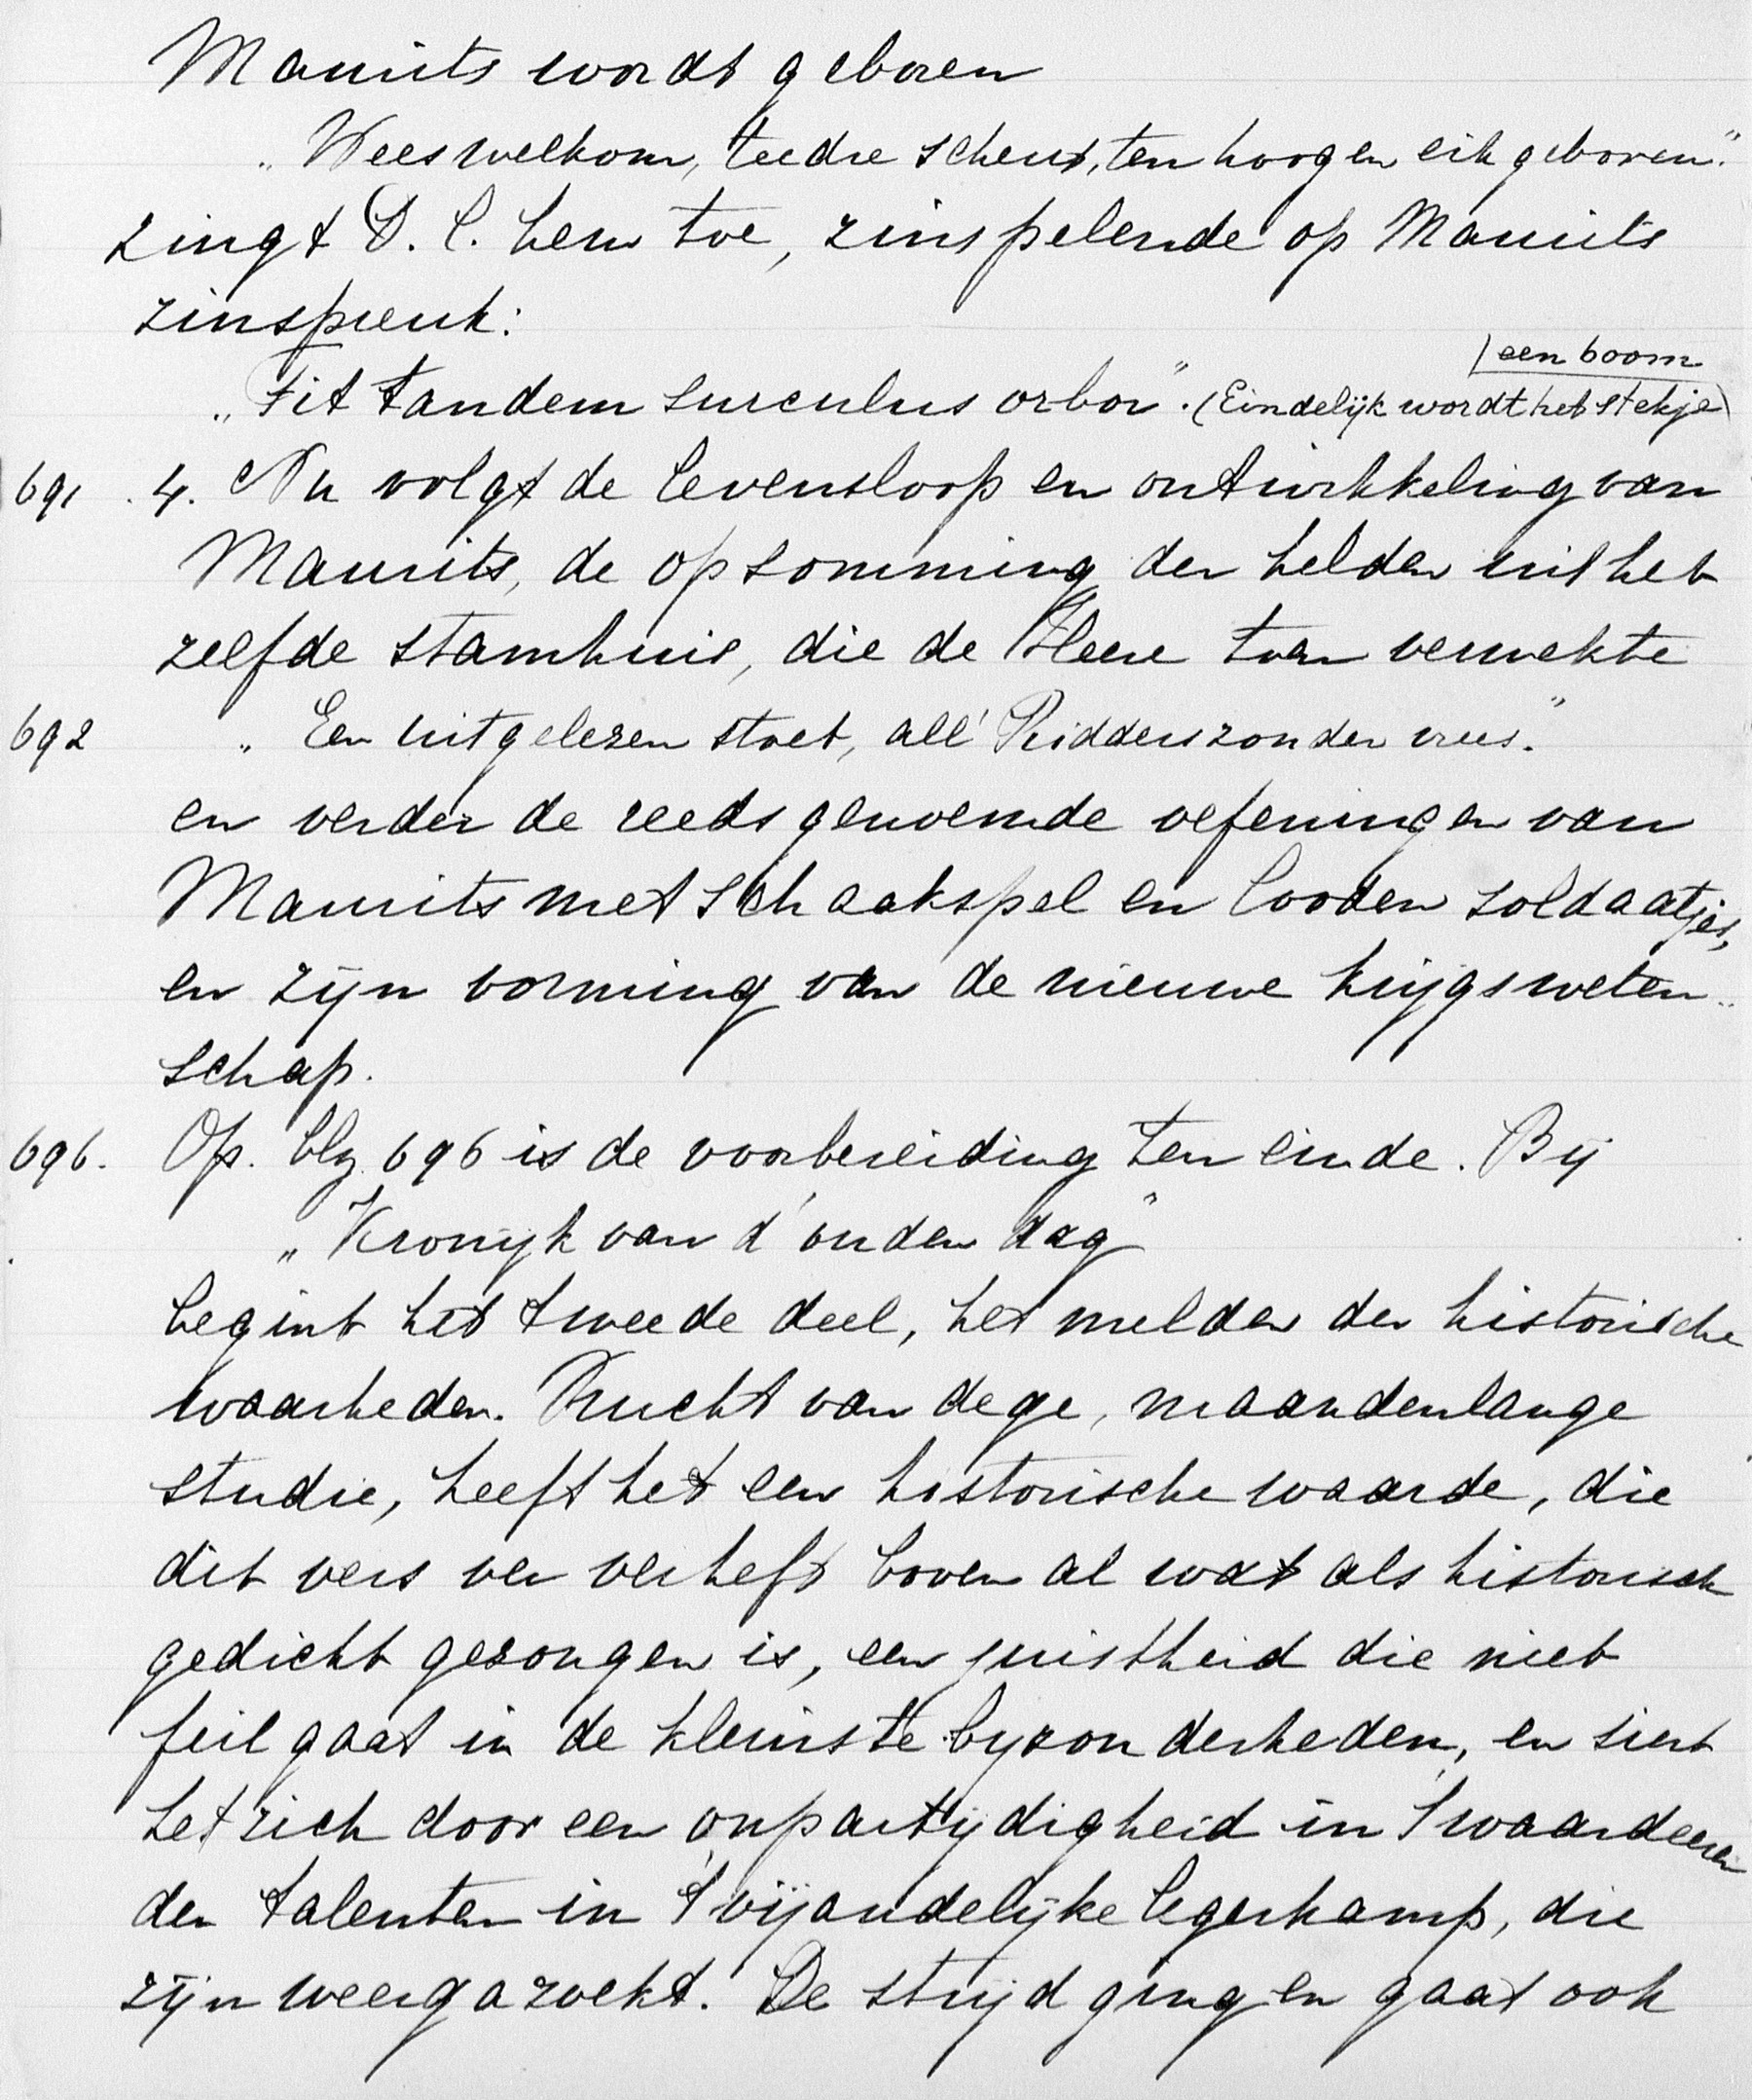 Maurits wordt geboren
„Wees welkom, teedre scheut, ten hoogen eik geboren."
zingt D. C. hem toe, zinspelende op Maurits
zinspreuk:
een boom
„Fit tandem surculus arbor". (Eindelijk wordt het stekje)
691 . 4. Nu volgt de levensloop en ontwikkeling van
Maurits, de opsomming der helden uit het
zelfde stamhuis, die de Heere toen verwekte
692 „Een uitgelezen stoet, all' Ridders zonder vrees."
en verder de reeds genoemde oefeningen van
Maurits met schaakspel en looden soldaatjes,
en zijn vorming van de nieuwe krijgsweten-
schap.
696. Op. blz. 696 is de voorbereiding ten einde. Bij
„Kronijk van d'ouden dag"
begint het tweede deel, het melden der historische
waarheden. Vrucht van dege, maandenlange
studie, heeft het een historische waarde, die
dit vers ver verheft boven al wat als historisch
gedicht gezongen is, een juistheid die niet
feil gaat in de kleinste byzonderheden, en siert
het zich door een onpartijdigheid in 't waardeeren
der talenten in 't vijandelijke legerkamp, die
zijn weerga zoekt. De strijd ging en gaat ook